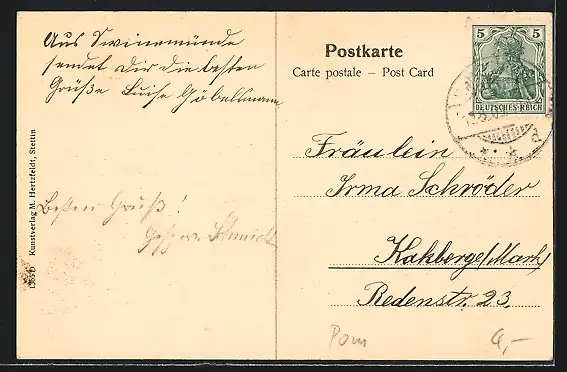 Aus Swinemünde
sendet Dir die besten
Grüße Luise Göbelmann
Besten Gruß!
Schmidt
Kunstverlag M. Hertzfeldt, Stettin
Postkarte
Carte postale – Post Card
5 5
DEUTSCHES REICH
Fräulein
Irma Schröder
Kalkberge/Mark
Redenstr. 23.
Pom
4,-